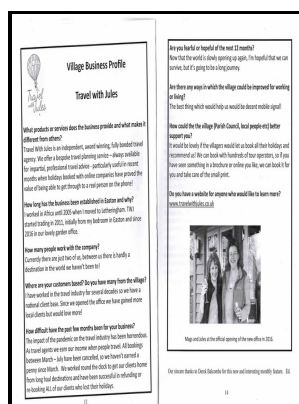 Travel with Jules
Village Business Profile
Travel with Jules
What products or services does the business provide and what makes it
different from others?
Travel With Jules is an independent, award winning, fully bonded travel
agency. We offer a bespoke travel planning service – always available
for impartial, professional travel advice - particularly useful in recent
months when holidays booked with online companies have proved the
value of being able to get through to a real person on the phone!
How long has the business been established in Easton and why?
I worked in Africa until 2005 when I moved to Letheringham. TWJ
started trading in 2011, initially from my bedroom in Easton and since
2016 in our lovely garden office.
How many people work with the company?
Currently there are just two of us, between us there is hardly a
destination in the world we haven't been to!
Where are your customers based? Do you have many from the village?
I have worked in the travel industry for several decades so we have a
national client base. Since we opened the office we have gained more
local clients but would love more!
How difficult have the past few months been for your business?
The impact of the pandemic on the travel industry has been horrendous.
As travel agents we earn our income when people travel. All bookings
between March – July have been cancelled, so we haven't earned a
penny since March. We worked round the clock to get our clients home
from long haul destinations and have been successful in refunding or
re-booking ALL of our clients who lost their holidays.
13
Are you fearful or hopeful of the next 12 months?
Now that the world is slowly opening up again, I'm hopeful that we can
survive, but it's going to be a long journey.
Are there any ways in which the village could be improved for working
or living?
The best thing which would help us would be decent mobile signal!
How could the the village (Parish Council, local people etc) better
support you?
It would be lovely if the villagers would let us book all their holidays and
recommend us! We can book with hundreds of tour operators, so if you
have seen something in a brochure or online you like, we can book it for
you and take care of the small print.
Do you have a website for anyone who would like to learn more?
www.travelwithjules.co.uk
Mags and Jules at the official opening of the new office in 2016.
Our sincere thanks to Derek Salcombe for this new and interesting monthly feature. Ed.
14